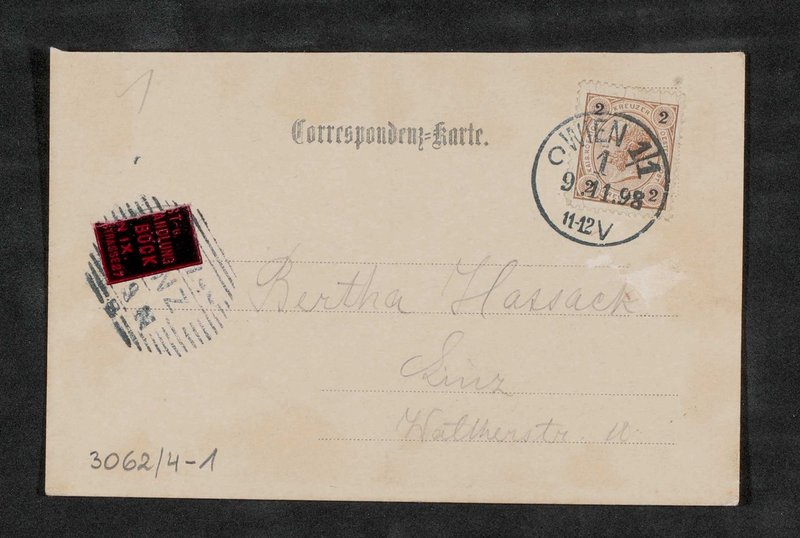 1
Correspondenz=Karte.
2 KREUZER 2
WIEN 1/1
1
9.11.98
11-12V
2 2
HANDLUNG
BÖCK
N IX.
NZ
Bertha Hassack
Linz
Waltherstr.
3062/4-1